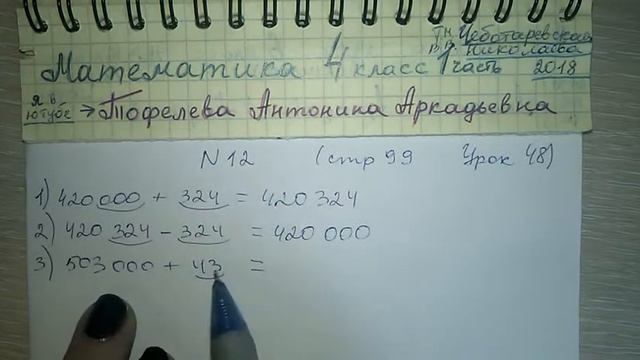 Т.Н. Чеботаревская
В. Николаева
Математика 4 класс 1 часть 2018
Я в ютубе → Тофелева Антонина Аркадьевна
N 12 (стр 99 Урок 48)
1) 420 000 + 324 = 420 324
2) 420 324 - 324 = 420 000
3) 503 000 + 43 =